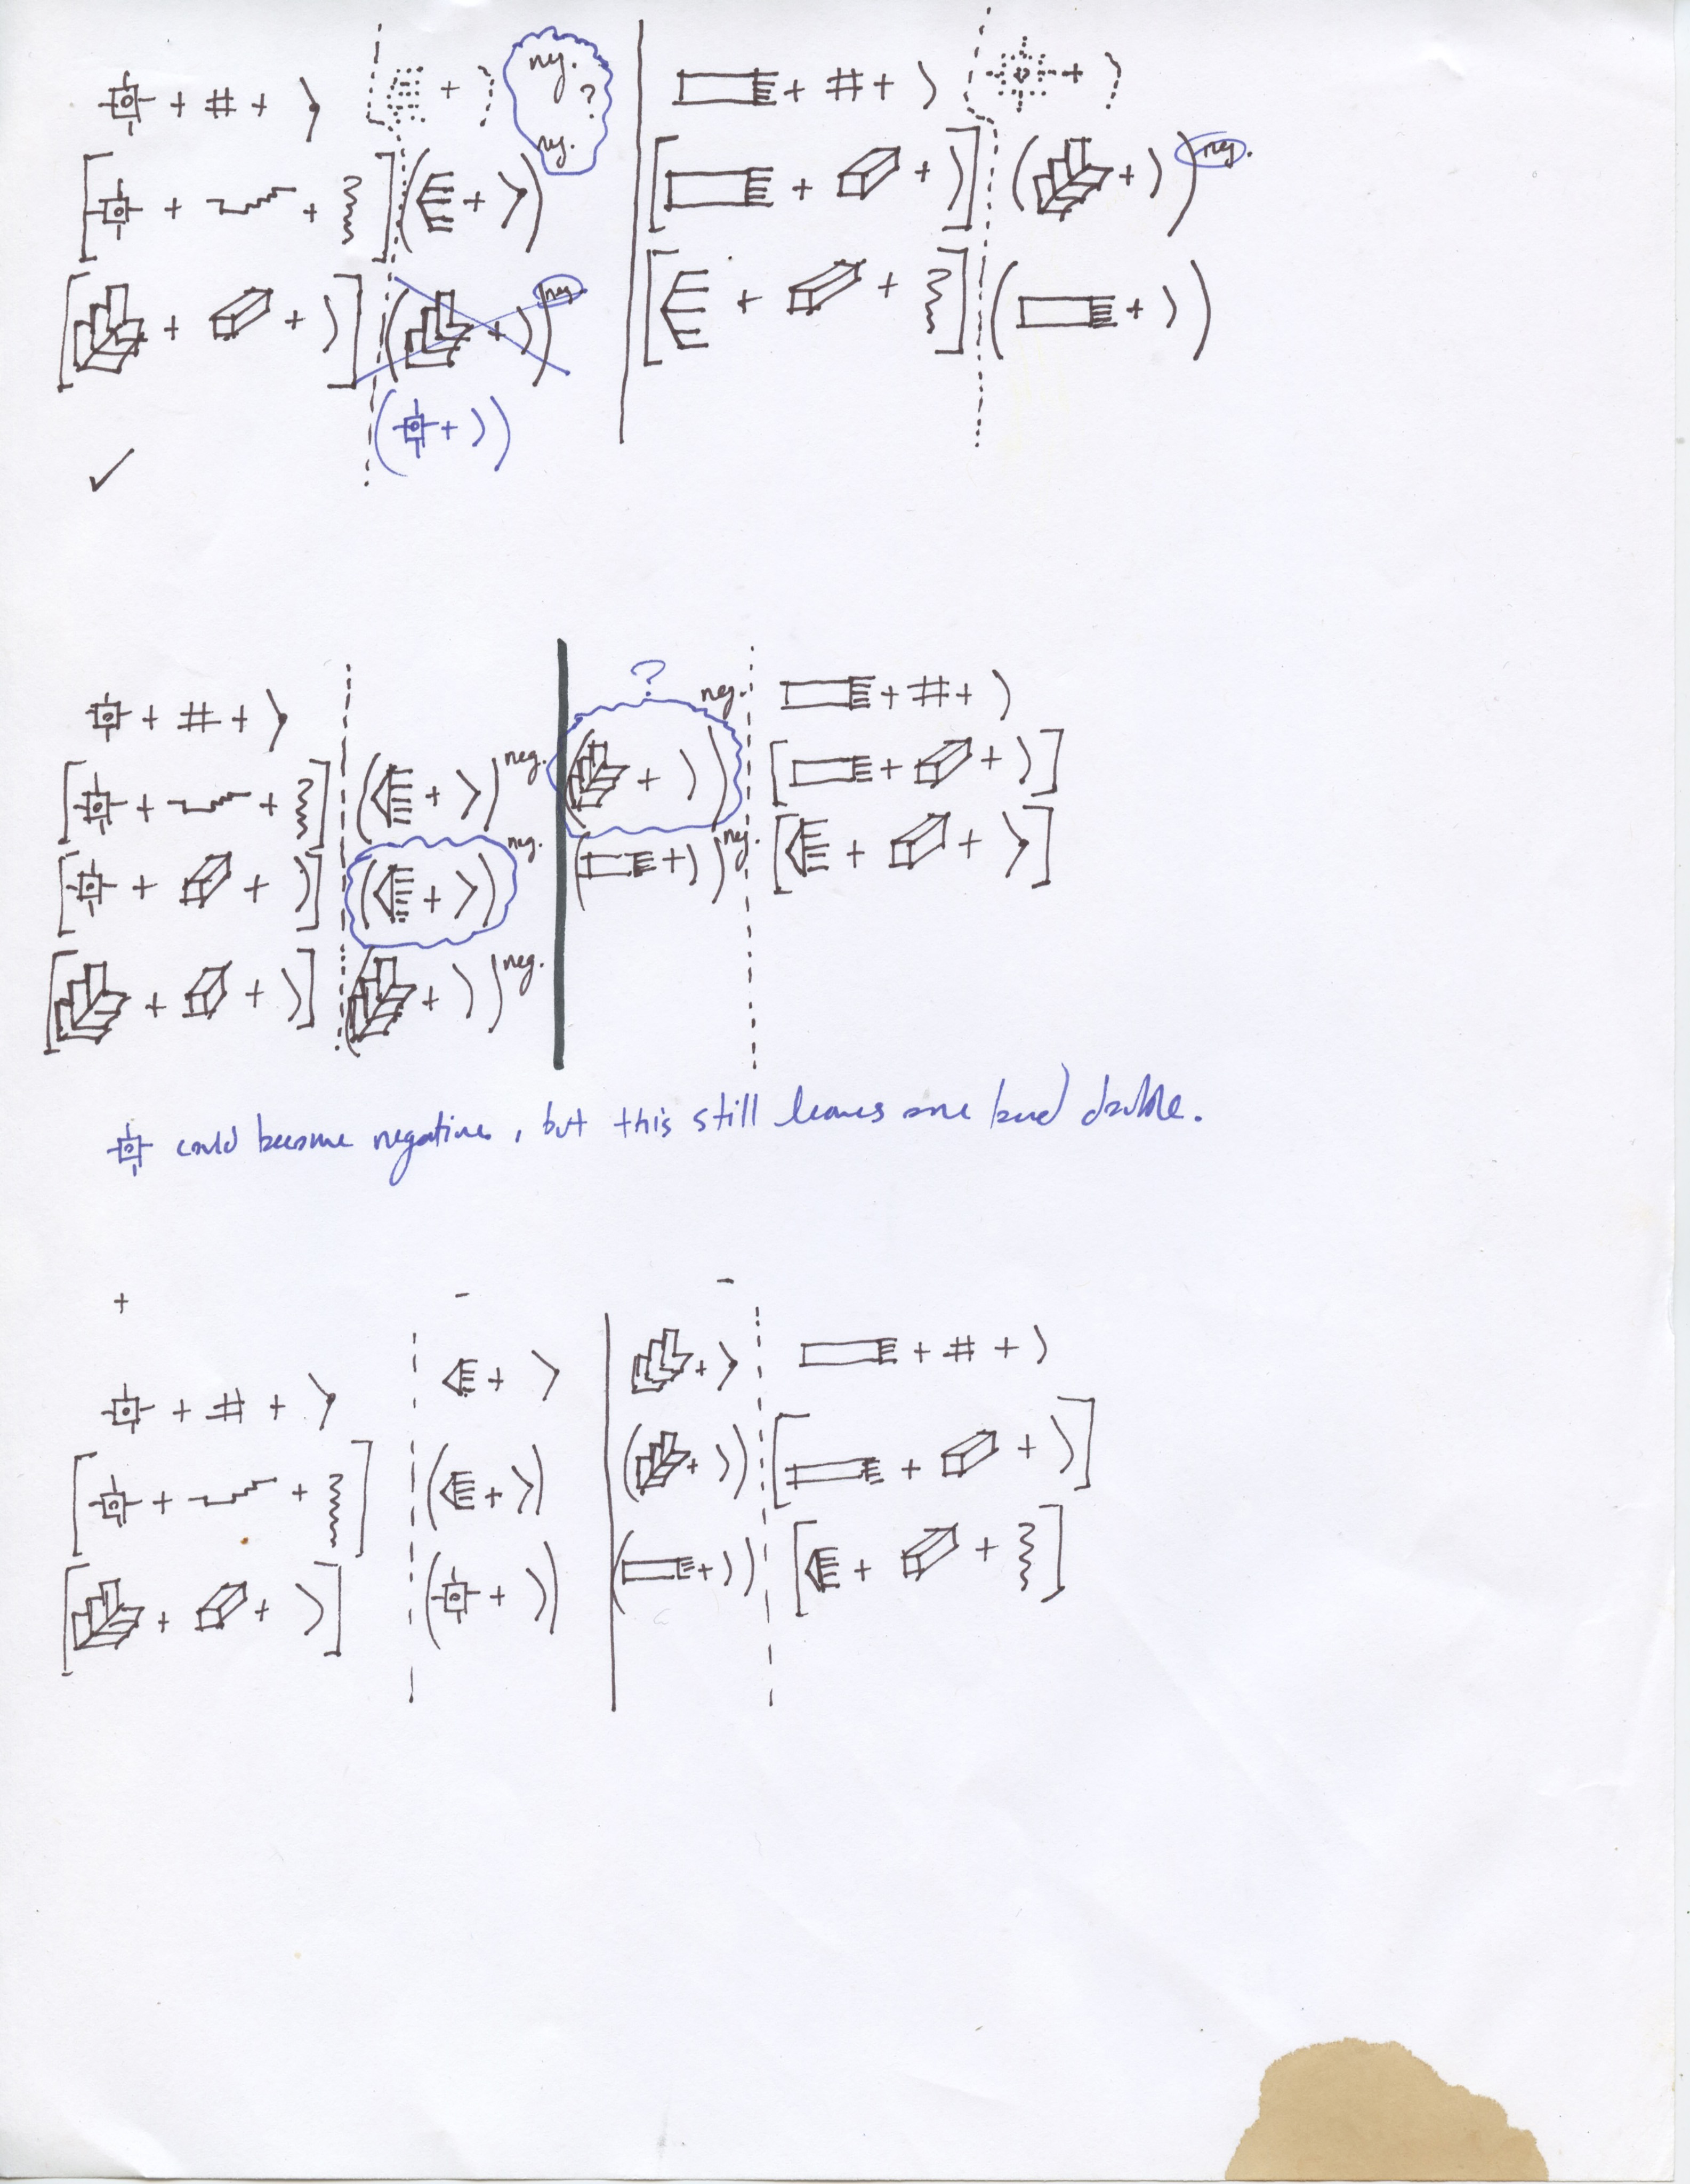 neg.
?
neg.
neg.
neg.
?
neg.
neg.
neg.
neg.
neg.
could become negative, but this still leaves one bad double.
+ - -